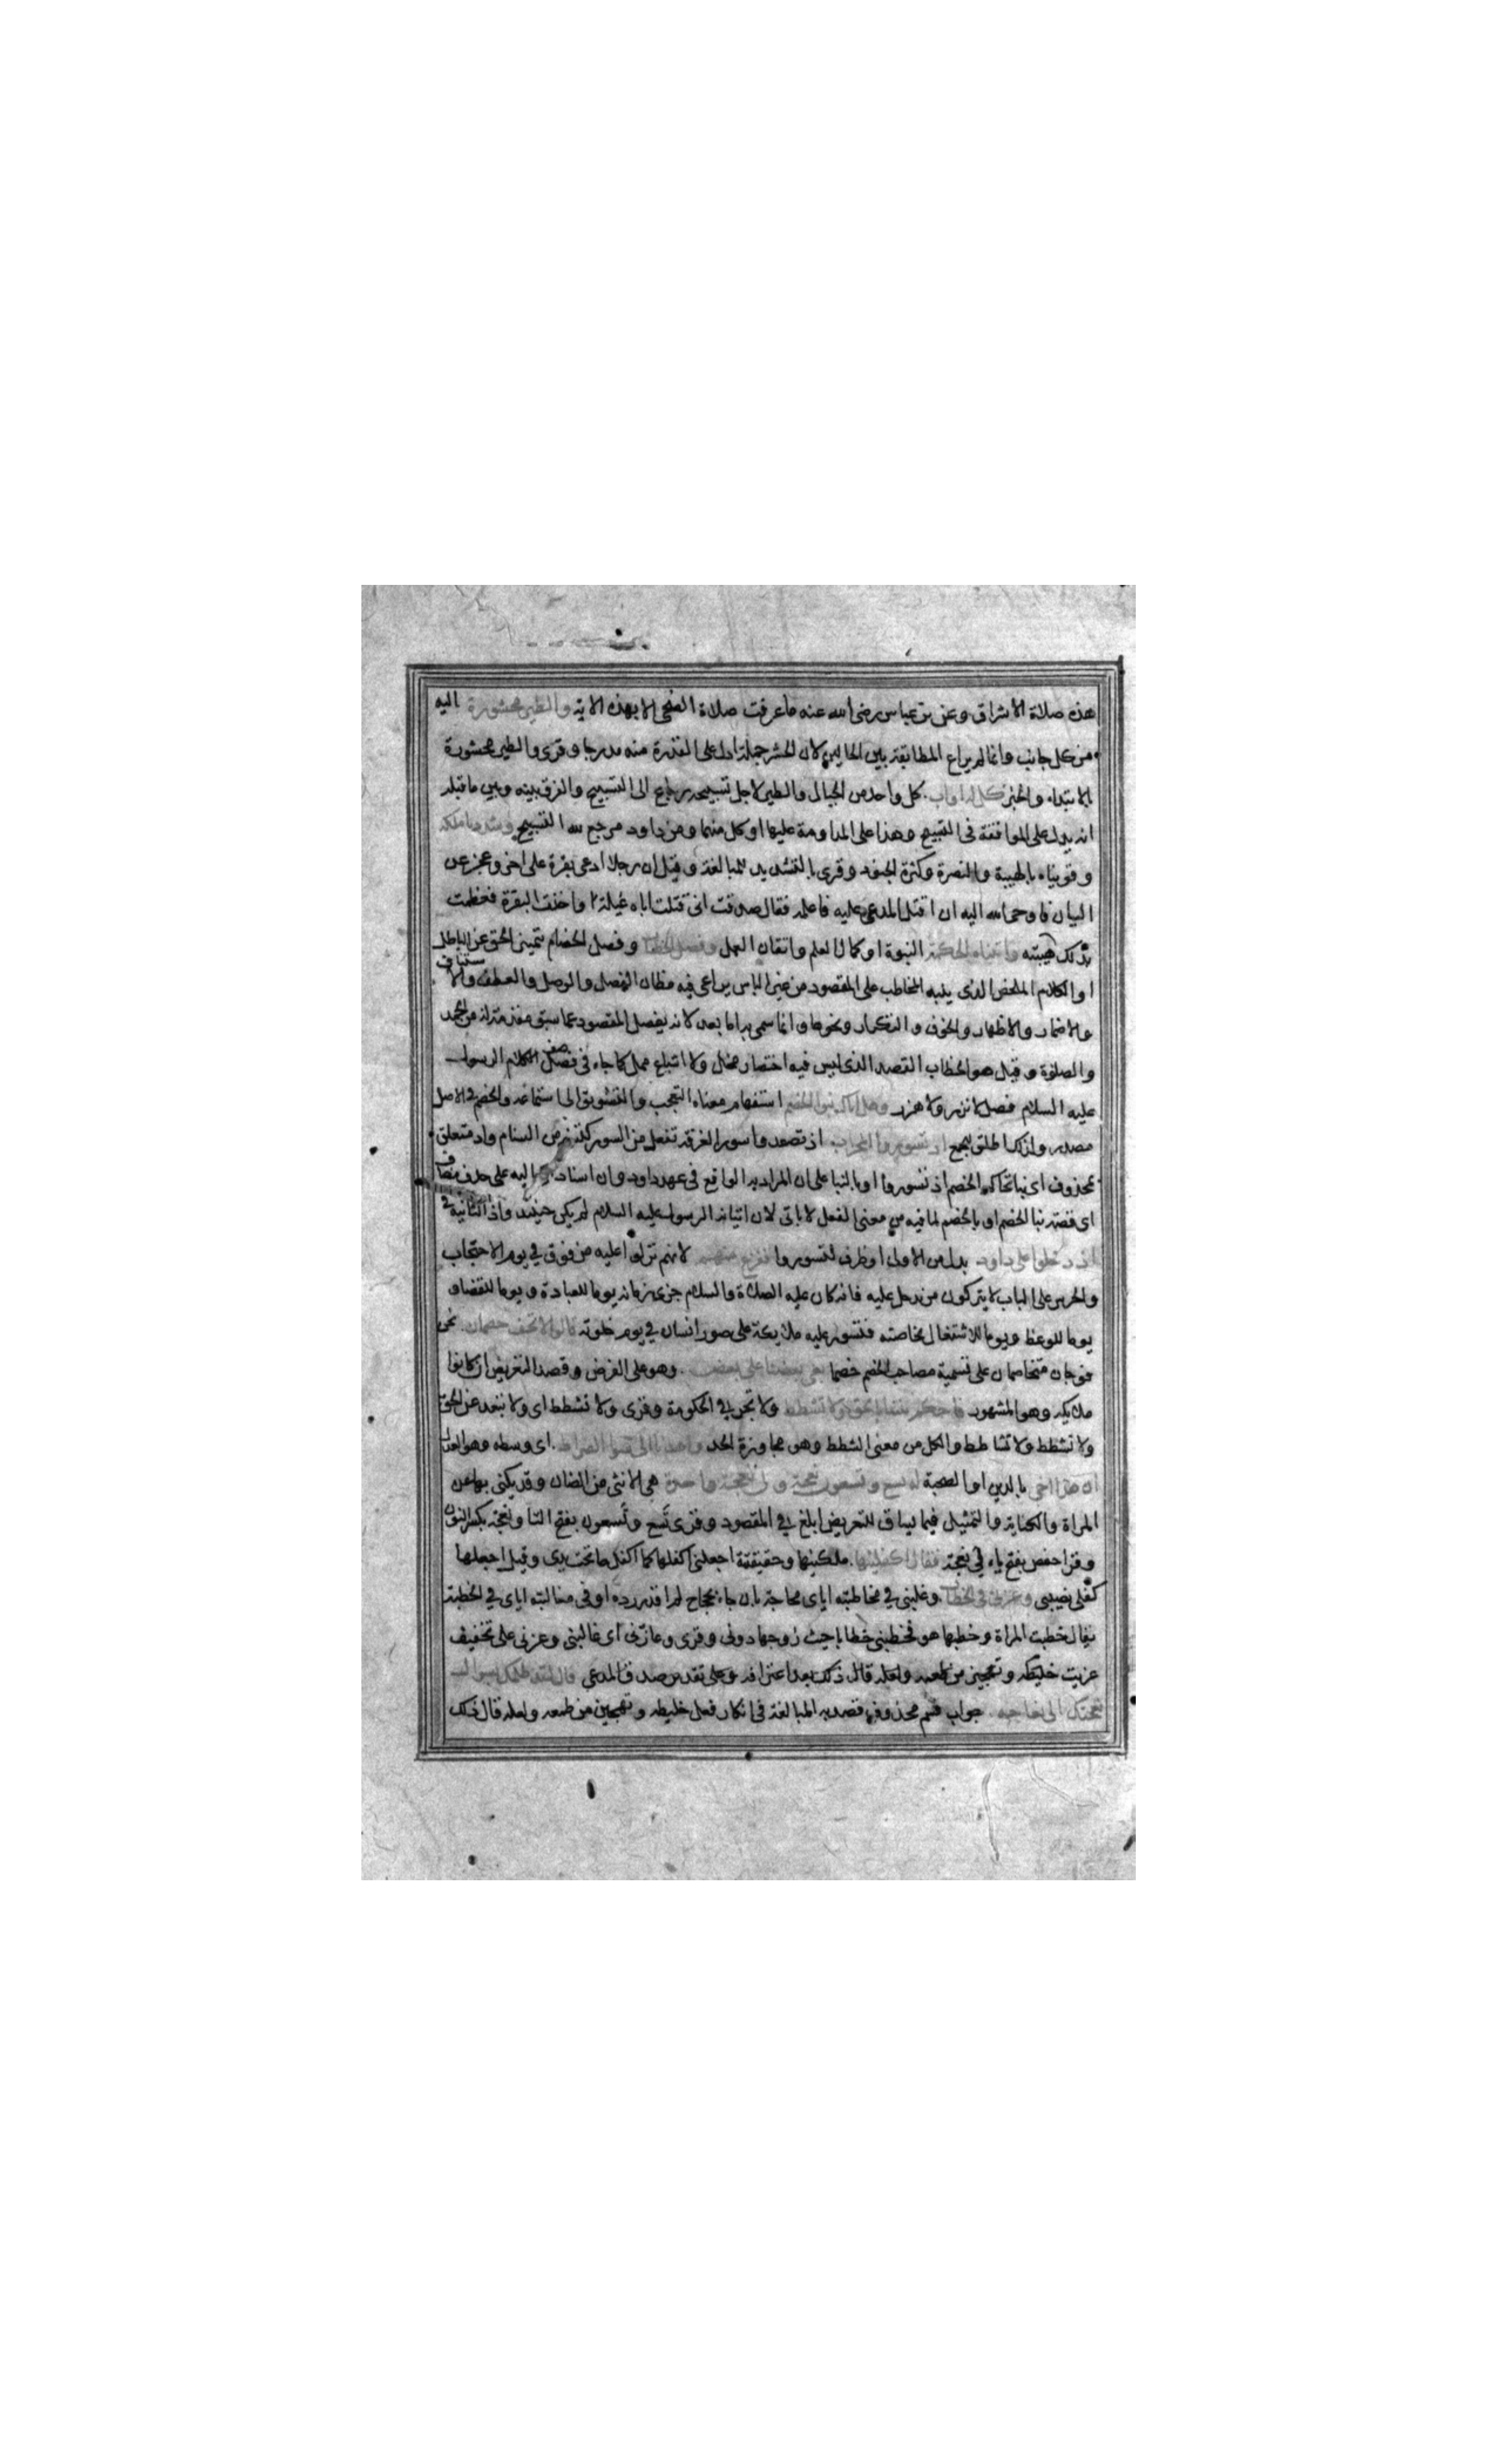 هذه صلاة الاشراق وعن بن عباس رضى الله عنه ما عرفت صلاة الضحى الا بهذه الاية والطير محشورة اليه
من كل جانب وانما لم يراع المطابقة بين الحالين لان الحشر جملة ادل على القدرة منه مدرجا وقرى والطير محشورة
بالابتداء والخبر كل له اواب كل واحد من الجبال والطير لاجل تسبيحه رجاع الى التسبيح والفرق بينه وبين ما قبله
انه يدل على الموافقة فى التسبيح وهذا على المداومة عليها او كل منهما ومن داود مرجع لله التسبيح وشددنا ملكه
وقويناه بالهيبة والنصرة وكثرة الجنود وقرى بالتشديد للمبالغة وقيل ان رجلا ادعى بقرة على اخر وعجز عن
البيان فاوحى الله اليه ان اقتل المدعى عليه فاعلمه فقال صدقت انى قتلت اباه غيلة واخذت البقرة فعظمت
بذلك هيبته واتيناه الحكمة النبوة او كمال العلم واتقان العمل وفصل الخطاب وفصل الخصام بتميز الحق عن الباطل
او الكلام الملخص الذى ينبه المخاطب على المقصود من غير الباس يراعى فيه مظان الفصل والوصل والعطف والاستيناف
والاضمار والاظهار والحذف والتكرار ونحوها وانما سمى به اما بعد لانه يفصل المقصود عما سبق مقدمة له من الحمد
والصلوة وقيل هو الخطاب القصد الذى ليس فيه اختصار مخل ولا اشباع ممل كما جاء فى وصف كلام الرسول
عليه السلام فصل لا نزر ولا هذر وهل اتاك نبوا الخصم استفهام معناه التعجب والتشويق الى استماعه والخصم فى الاصل
مصدر ولذلك اطلق للجمع اذ تسوروا المحراب اذ تصعدوا سور الغرفة تفعل من السور كتسنم من السنام واذ متعلق
بمحذوف اى نبا تحاكم الخصم اذ تسوروا او بالنبا على ان المراد به الواقع فى عهد داود وان اسناد اليه على حذف مضاف
اى قصة نبا الخصم او بالخصم لما فيه من معنى الفعل لا باتى لان اتيانه الرسول عليه السلام لم يكن حينئذ واذ الثانية فى
اذ دخلوا على داود بدل من الاولى او ظرف لتسوروا ففزع منهم لانهم نزلوا عليه من فوق فى يوم الاحتجاب
والحرس على الباب لا يتركون من يدخل عليه فانه كان عليه الصلاة والسلام جزء زمانه يوما للعبادة ويوما للقضاء
يوما للوعظ ويوما للاشتغال بخاصته فتسور عليه ملائكة على صور انسان فى يوم خلوته قالوا لا تخف خصمان نحن
فوجان متخاصمان على تسمية مصاحب الخصم خصما بغى بعضنا على بعض وهو على الفرض وقصد التعريض ان كانوا
ملايكه وهو المشهور فاحكم بيننا بالحق ولا تشطط ولا تجر فى الحكومة وقرى ولا تشطط اى ولا تبعد عن الحق
ولا تشطط ولا تشاطط والكل من معنى الشطط وهو مجاوزة الحد واهدنا الى سوا الصراط اى وسطه وهو العدل
ان هذا اخى بالدين او الصحبة له تسع وتسعون نعجة ولى نعجة واحدة هى الانثى من الضان وقد يكنى بها عن
المراة والكناية والتمثيل فيما يساق للتعريض ابلغ فى المقصود وقرى تَسع وتَسعون بفتح التا ونعجة بكسر النون
وقرا حفص بفتح ياء لى نعجة فقال اكفلنيها ملكنيها وحقيقته اجعلنى اكفلها كما اكفل ما تحت يدى وقيل اجعلها
كفلى نصيبى وعزنى فى الخطاب وغلبنى فى مخاطبته اياى محاجة بان جاء بحجاج لم اقدر رده او فى مغالبته اياى فى الخطبة
يقال خطبت المراة وخطبها هو فخطبنى خطابا حيث زوجها دونى وقرى وعازنى اى غالبنى وعزنى على تخفيف
عزيت خليطه وتهجين من طمعه ولعله قال ذلك بعد اعترافه وعلى تقدير صدق المدعى قال لقد ظلمك بسوال
نعجتك الى نعاجه جواب قسم محذوف قصد به المبالغة فى انكار فعل خليطه وتهجين من طمعه ولعله قال ذلك